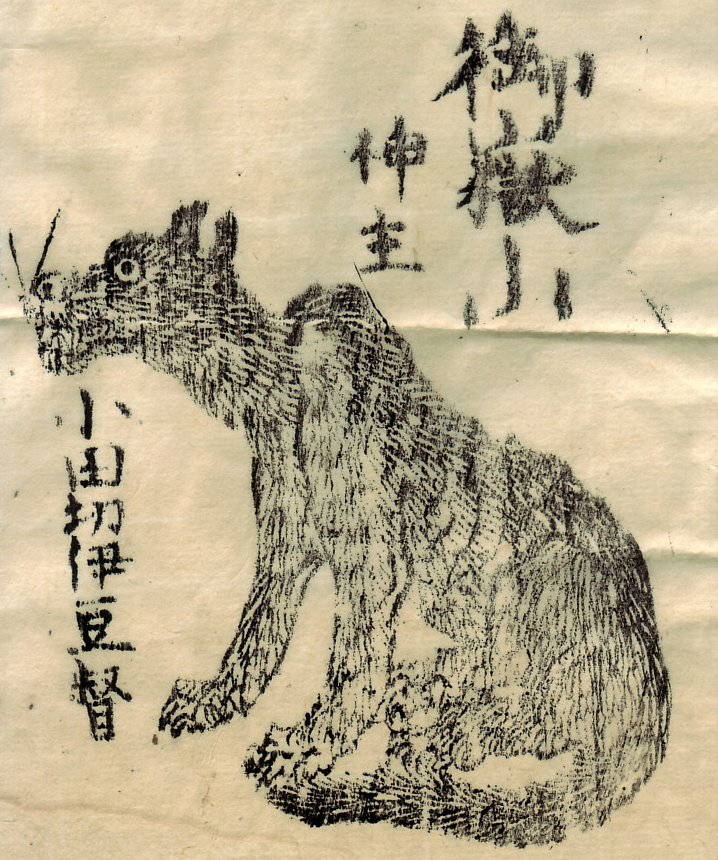 御嶽山
神主
小田切伊豆督